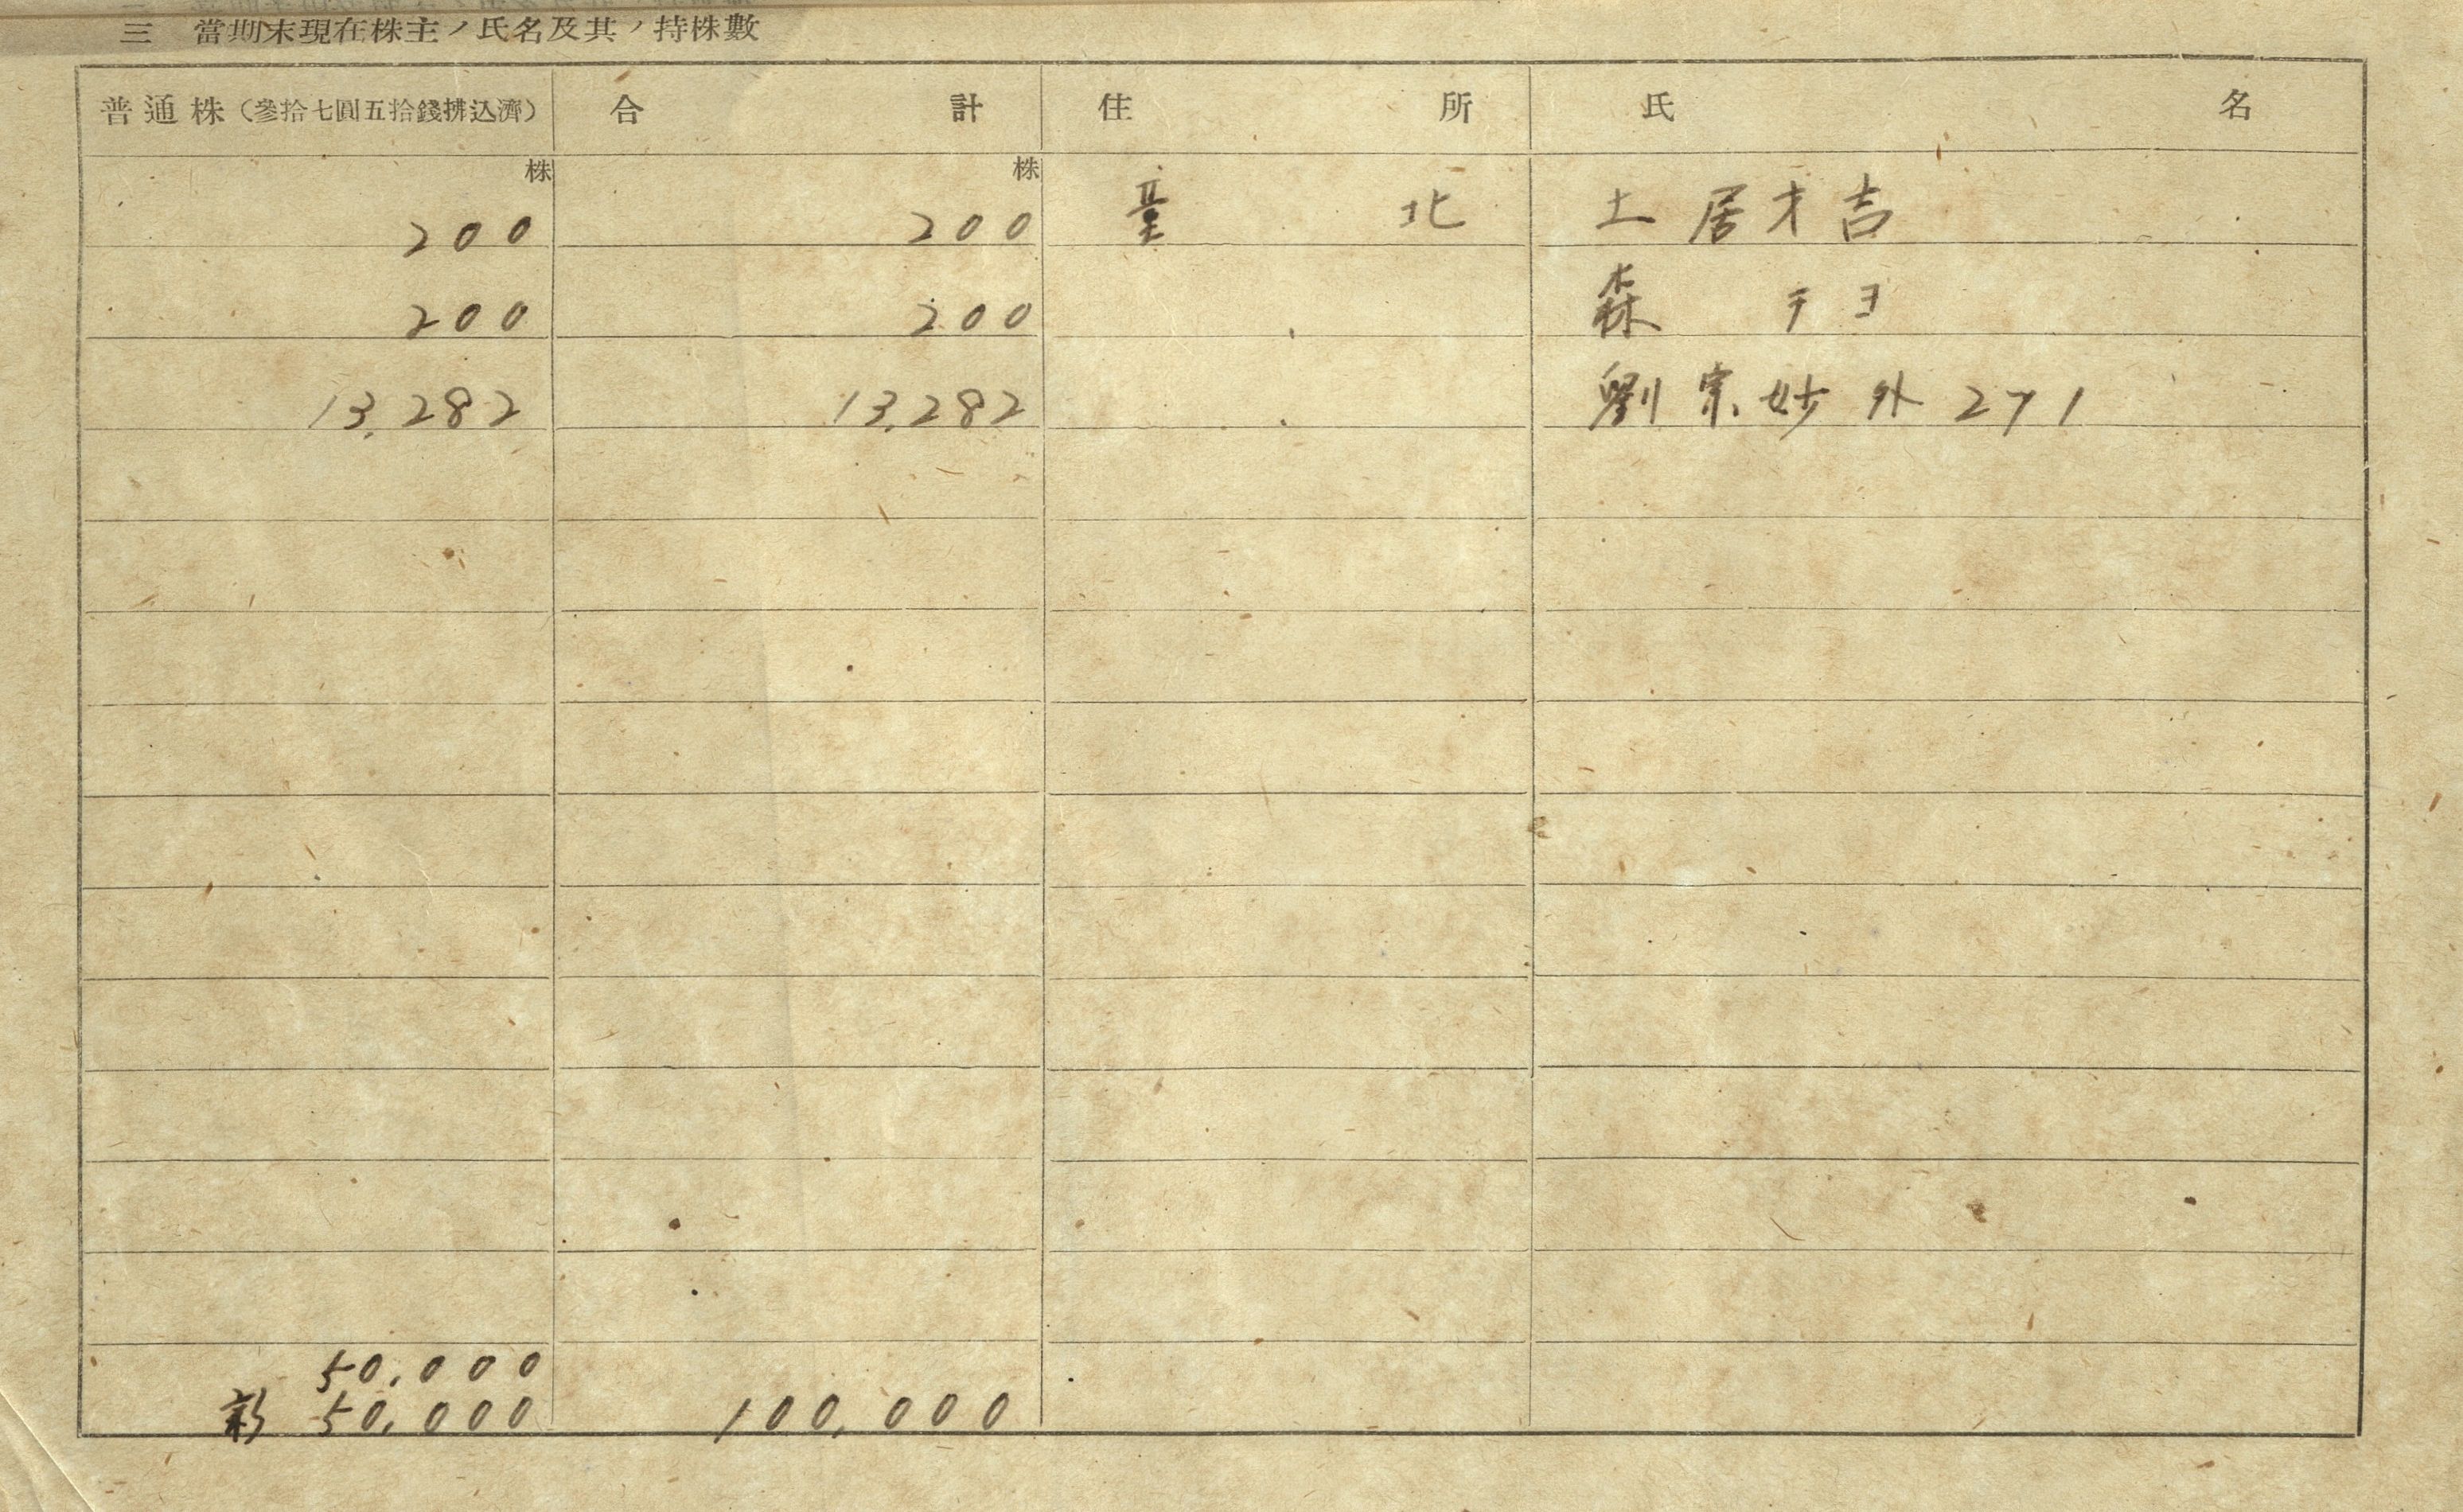 三 當期末現在株主ノ氏名及其ノ持株數
普通株（參拾七圓五拾錢拂込濟） 合計 住所 氏名
株 株
200 200 臺北 土居才吉
200 200 〃 森 チヨ
13,282 13,282 〃 劉宗妙外271
50,000
新 50,000 100,000